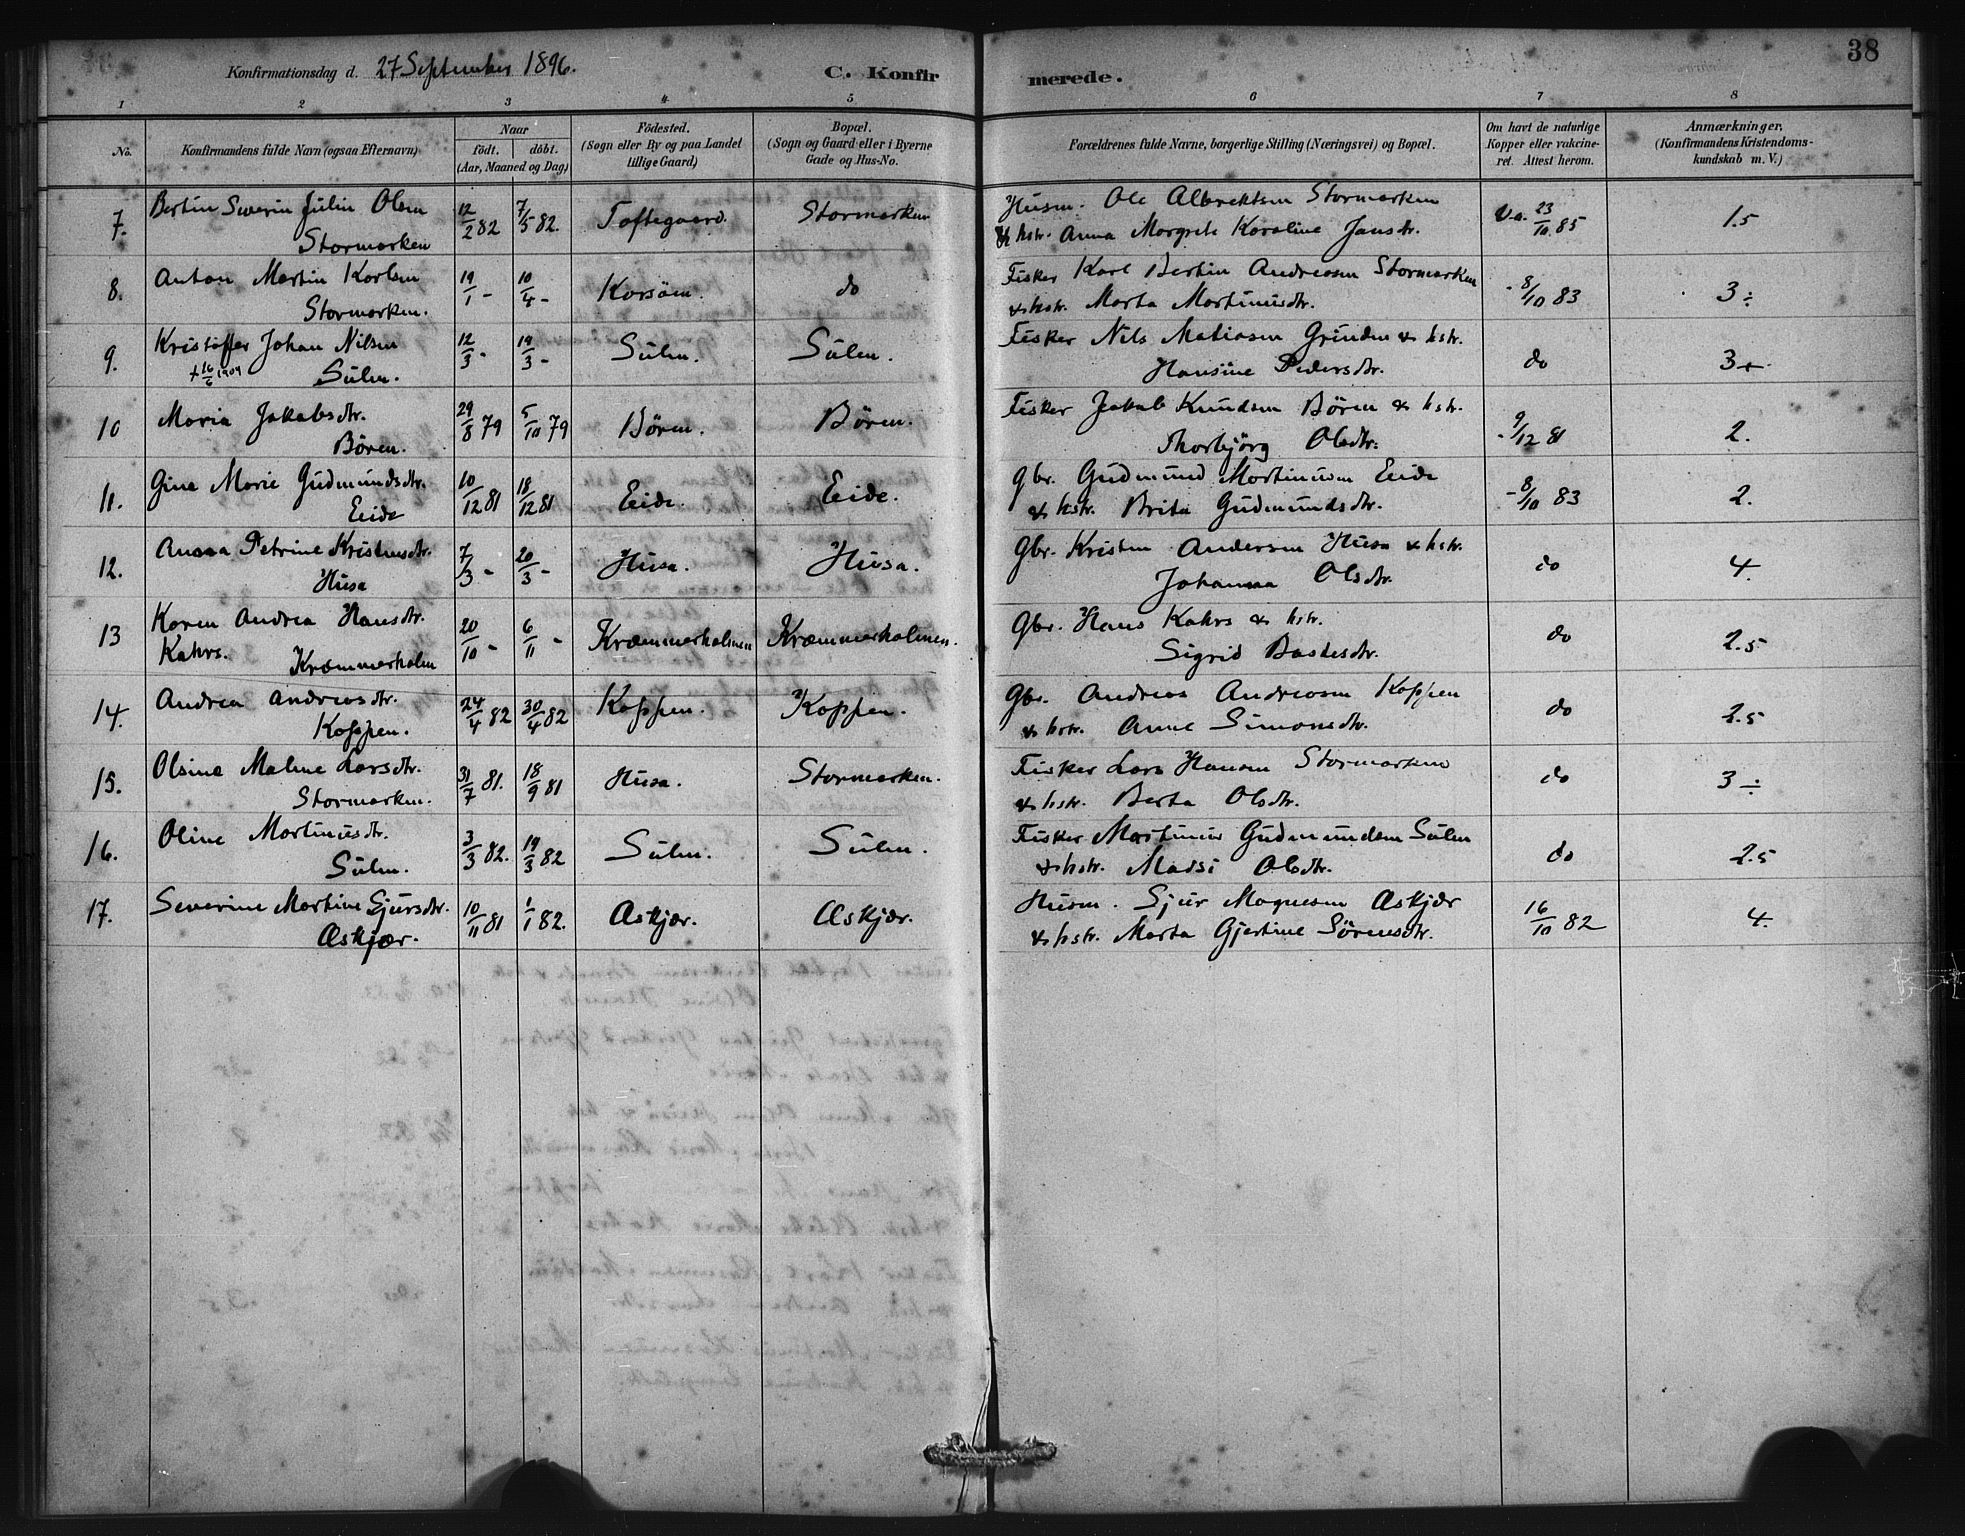 Konfirmationsdag d. 27 September 1896. C. Konfirmerede. 38
1 2 3 4 5 6 7 8
No. Konfirmandens fulde Navn (ogsaa Efternavn) Naar født. døbt. (Aar, Maaned og Dag) Fødested. (Sogn eller By og paa Landet tillige Gaard) Bopæl. (Sogn og Gaard eller i Byerne Gade og Hus-No. Forældrenes fulde Navne, borgerlige Stilling (Næringsvei) og Bopæl. Om havt de naturlige Kopper eller vakcineret. Attest herom. Anmærkninger, (Konfirmandens Kristendomskundskab m. V.)
7. Bertin Severin Julin Olsen 12/2 82 7/5 82. Toftegaard. Stormarken Husm. Ole Albrektsen Stormarken Va. 23/10 85 1.5
Stormarken & hstr. Anna Margrete Karoline Jansdtr.
8. Anton Martin Karlsen 19/1 - 10/4 - Korsøen. do Fisker Karl Bertin Andreasen Stormarken - 8/10 83 3 ÷
Stormarken. & hstr. Marta Martinusdtr.
9. Kristoffer Johan Nilsen 12/3 - 19/3 - Sulen. Sulen. Fisker Nils Matiasen Grinden & hstr. do 3+
+ 16/6 1909 Sulen. Hansine Pedersdtr.
10 Maria Jakobsdtr. 29/8 79 5/10 79 Børen. Børen. Fisker Jakob Knudsen Børen & hstr. - 9/12 81 2.
Børen. Thorbjørg Olsdtr.
11. Gina Marie Gudmundsdtr. 10/12 81 18/12 81 Eide. Eide. Gbr. Gudmund Martinusen Eide - 8/10 83 2.
Eide & hstr. Brita Gudmundsdtr.
12. Anna Petrine Kristensdtr. 7/3 - 20/3 - Husa. Husa. Gbr. Kristen Andersen Husa & hstr. do 4.
Husa Johanna Olsdtr.
13 Karen Andrea Hansdtr. 20/10 - 6/11 - Kræmmerholmen Kræmmerholmen. Gbr. Hans Kahrs & hstr. do 2.5
Kahrs. Kræmmerholm Sigrid Bastesdtr.
14. Andrea Andreasdtr. 24/4 82 30/4 82 Koppen. Koppen. Gbr. Andreas Andreasen Koppen do 2.5
Koppen. & hstr. Anne Simonsdtr.
15. Olsina Maline Larsdtr. 31/7 81. 18/9 81 Husa. Stormarken. Fisker Lars Hansen Stormarken do 3 ÷
Stormarken. & hstr. Berta Olsdtr.
16. Oline Martinusdtr. 3/3 82. 19/3 82 Sulen. Sulen. Fisker Martinus Gudmundsen Sulen do 2.5
Sulen. & hstr. Madsi Olsdtr.
17. Severine Martine Sjursdtr. 10/11 81 1/1 82. Askjær. Askjær. Husm. Sjur Magnesen Askjær 16/10 82 4.
Askjær. & hstr. Marta Gjertine Sørensdtr.